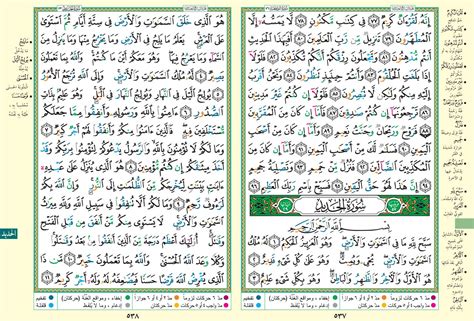 إِنَّهُۥ لَقُرْءَانٌ كَرِيمٌ ٧٧ فِى كِتَٰبٍ مَّكْنُونٍ ٧٨ لَّا يَمَسُّهُۥٓ إِلَّا ٱلْمُطَهَّرُونَ
٧٩ تَنزِيلٌ مِّن رَّبِّ ٱلْعَٰلَمِينَ ٨٠ أَفَبِهَٰذَا ٱلْحَدِيثِ أَنتُم مُّدْهِنُونَ ٨١
وَتَجْعَلُونَ رِزْقَكُمْ أَنَّكُمْ تُكَذِّبُونَ ٨٢ فَلَوْلَآ إِذَا بَلَغَتِ ٱلْحُلْقُومَ ٨٣
وَأَنتُمْ حِينَئِذٍ تَنظُرُونَ ٨٤ وَنَحْنُ أَقْرَبُ إِلَيْهِ مِنكُمْ وَلَٰكِن لَّا تُبْصِرُونَ
٨٥ فَلَوْلَآ إِن كُنتُمْ غَيْرَ مَدِينِينَ ٨٦ تَرْجِعُونَهَآ إِن كُنتُمْ صَٰدِقِينَ ٨٧
فَأَمَّآ إِن كَانَ مِنَ ٱلْمُقَرَّبِينَ ٨٨ فَرَوْحٌ وَرَيْحَانٌ وَجَنَّتُ نَعِيمٍ ٨٩ وَأَمَّآ إِن
كَانَ مِنْ أَصْحَٰبِ ٱلْيَمِينِ ٩٠ فَسَلَٰمٌ لَّكَ مِنْ أَصْحَٰبِ ٱلْيَمِينِ ٩١
وَأَمَّآ إِن كَانَ مِنَ ٱلْمُكَذِّبِينَ ٱلضَّآلِّينَ ٩٢ فَنُزُلٌ مِّنْ حَمِيمٍ ٩٣ وَتَصْلِيَةُ جَحِيمٍ
٩٤ إِنَّ هَٰذَا لَهُوَ حَقُّ ٱلْيَقِينِ ٩٥ فَسَبِّحْ بِٱسْمِ رَبِّكَ ٱلْعَظِيمِ ٩٦
سُورَةُ الحَدِيد
بِسْمِ ٱللَّهِ ٱلرَّحْمَٰنِ ٱلرَّحِيمِ
سَبَّحَ لِلَّهِ مَا فِى ٱلسَّمَٰوَٰتِ وَٱلْأَرْضِ وَهُوَ ٱلْعَزِيزُ ٱلْحَكِيمُ ١ لَهُۥ مُلْكُ
ٱلسَّمَٰوَٰتِ وَٱلْأَرْضِ يُحْىِۦ وَيُمِيتُ وَهُوَ عَلَىٰ كُلِّ شَىْءٍ قَدِيرٌ ٢
هُوَ ٱلْأَوَّلُ وَٱلْءَاخِرُ وَٱلظَّٰهِرُ وَٱلْبَاطِنُ وَهُوَ بِكُلِّ شَىْءٍ عَلِيمٌ ٣
٥٣٧
هُوَ ٱلَّذِى خَلَقَ ٱلسَّمَٰوَٰتِ وَٱلْأَرْضَ فِى سِتَّةِ أَيَّامٍ ثُمَّ ٱسْتَوَىٰ
عَلَى ٱلْعَرْشِ يَعْلَمُ مَا يَلِجُ فِى ٱلْأَرْضِ وَمَا يَخْرُجُ مِنْهَا وَمَا
يَنزِلُ مِنَ ٱلسَّمَآءِ وَمَا يَعْرُجُ فِيهَا وَهُوَ مَعَكُمْ أَيْنَ مَا كُنتُمْ وَٱللَّهُ
بِمَا تَعْمَلُونَ بَصِيرٌ ٤ لَّهُۥ مُلْكُ ٱلسَّمَٰوَٰتِ وَٱلْأَرْضِ وَإِلَى ٱللَّهِ تُرْجَعُ ٱلْأُمُورُ
٥ يُولِجُ ٱلَّيْلَ فِى ٱلنَّهَارِ وَيُولِجُ ٱلنَّهَارَ فِى ٱلَّيْلِ وَهُوَ عَلِيمٌۢ بِذَاتِ
ٱلصُّدُورِ ٦ ءَامِنُوا۟ بِٱللَّهِ وَرَسُولِهِۦ وَأَنفِقُوا۟ مِمَّا جَعَلَكُم مُّسْتَخْلَفِينَ
فِيهِ فَٱلَّذِينَ ءَامَنُوا۟ مِنكُمْ وَأَنفَقُوا۟ لَهُمْ أَجْرٌ كَبِيرٌ ٧ وَمَا لَكُمْ
لَا تُؤْمِنُونَ بِٱللَّهِ وَٱلرَّسُولُ يَدْعُوكُمْ لِتُؤْمِنُوا۟ بِرَبِّكُمْ وَقَدْ أَخَذَ
مِيثَٰقَكُمْ إِن كُنتُم مُّؤْمِنِينَ ٨ هُوَ ٱلَّذِى يُنَزِّلُ عَلَىٰ عَبْدِهِۦٓ
ءَايَٰتٍۭ بَيِّنَٰتٍ لِّيُخْرِجَكُم مِّنَ ٱلظُّلُمَٰتِ إِلَى ٱلنُّورِ وَإِنَّ ٱللَّهَ بِكُمْ
لَرَءُوفٌ رَّحِيمٌ ٩ وَمَا لَكُمْ أَلَّا تُنفِقُوا۟ فِى سَبِيلِ ٱللَّهِ وَلِلَّهِ مِيرَٰثُ
ٱلسَّمَٰوَٰتِ وَٱلْأَرْضِ لَا يَسْتَوِى مِنكُم مَّنْ أَنفَقَ مِن قَبْلِ ٱلْفَتْحِ
وَقَٰتَلَ أُو۟لَٰٓئِكَ أَعْظَمُ دَرَجَةً مِّنَ ٱلَّذِينَ أَنفَقُوا۟ مِنۢ بَعْدُ وَقَٰتَلُوا۟
وَكُلًّا وَعَدَ ٱللَّهُ ٱلْحُسْنَىٰ وَٱللَّهُ بِمَا تَعْمَلُونَ خَبِيرٌ ١٠ مَّن ذَا
ٱلَّذِى يُقْرِضُ ٱللَّهَ قَرْضًا حَسَنًا فَيُضَٰعِفَهُۥ لَهُۥ وَلَهُۥٓ أَجْرٌ كَرِيمٌ ١١
٥٣٨
الحديد